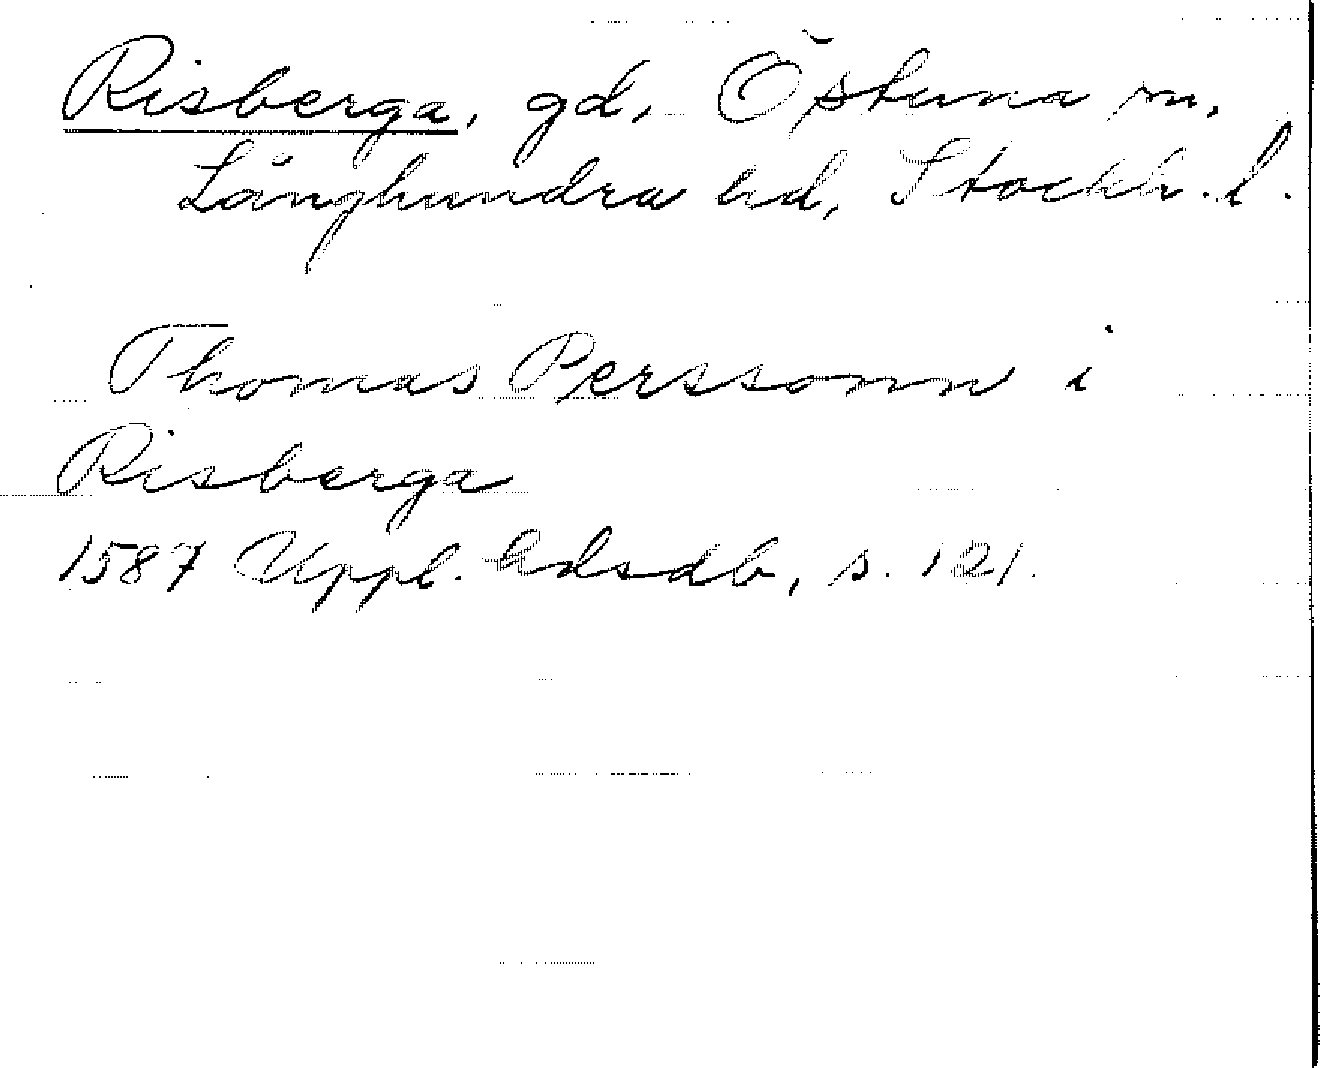 Risberga, gd, Östuna sn,
Långhundra hd, Stockh. l.
Thomas Perssonn i
Risberga
1587 Uppl. hdsdb, s. 121.